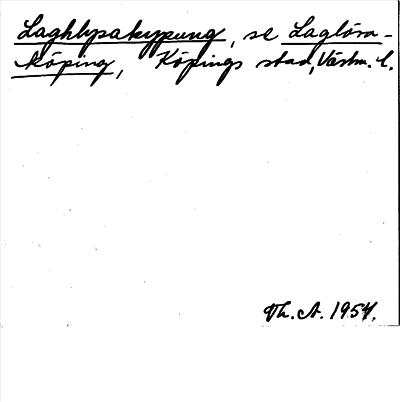 Laghlypakypung, se Laglösa-
köping, Köpings stad, Västm. l.
Th. A. 1954.